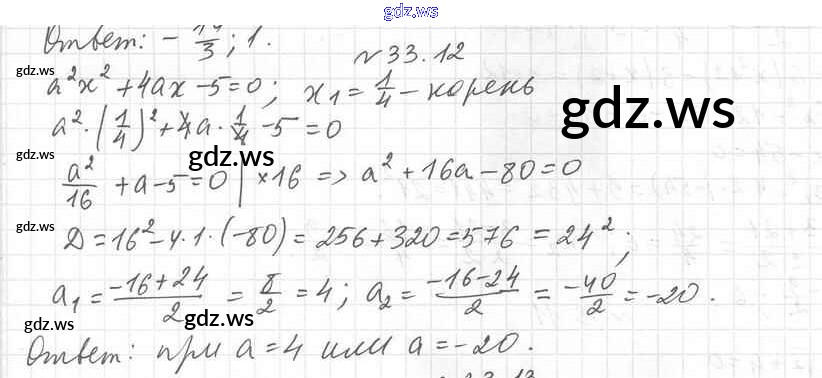 gdz.ws
Ответ: - 14/3; 1.
№ 33.12
gdz.ws
a²x² + 4ax - 5 = 0; x₁ = 1/4 - корень
gdz.ws
a² · (1/4)² + 4a · 1/4 - 5 = 0
gdz.ws
gdz.ws
a²/16 + a - 5 = 0 | ×16 => a² + 16a - 80 = 0
gdz.ws
Д = 16² - 4 · 1 · (-80) = 256 + 320 = 576 = 24²;
a₁ = (-16 + 24)/2 = 8/2 = 4; a₂ = (-16 - 24)/2 = -40/2 = -20.
gdz.ws
gdz.ws
Ответ: при a = 4 или a = -20.
gdz.ws
33.13